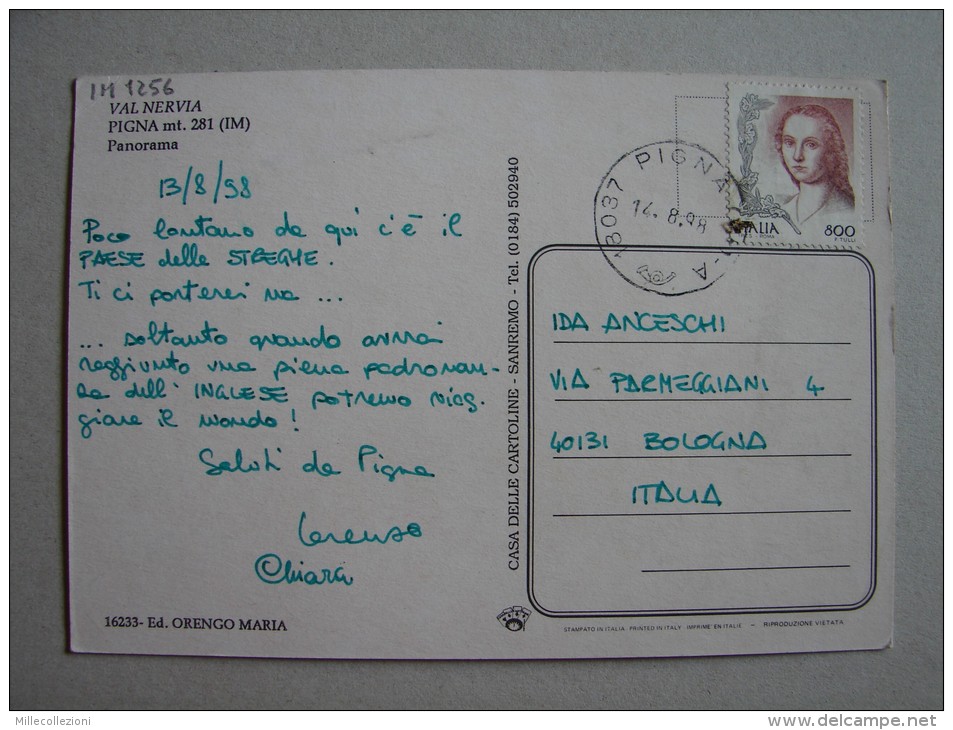 IM 1256
VAL NERVIA
PIGNA mt. 281 (IM)
Panorama
13/8/98
Poco lontano da qui c'è il
PAESE delle STREGHE.
Ti ci porterei ma ...
... soltanto quando avrai
raggiunto una piena padronan-
za dell' INGLESE potremo viag-
giare il mondo!
Saluti da Pigna
Lorenzo
Chiara
16233- Ed. ORENGO MARIA
CASA DELLE CARTOLINE - SANREMO - Tel. (0184) 502940
18037 PIGNA
14.8.98
ITALIA 800
F. TULLI
IDA ANCESCHI
VIA PARMEGGIANI 4
40131 BOLOGNA
ITALIA
STAMPATO IN ITALIA - PRINTED IN ITALY - IMPRIMÉ EN ITALIE - RIPRODUZIONE VIETATA
Millecollezioni
www.delcampe.net